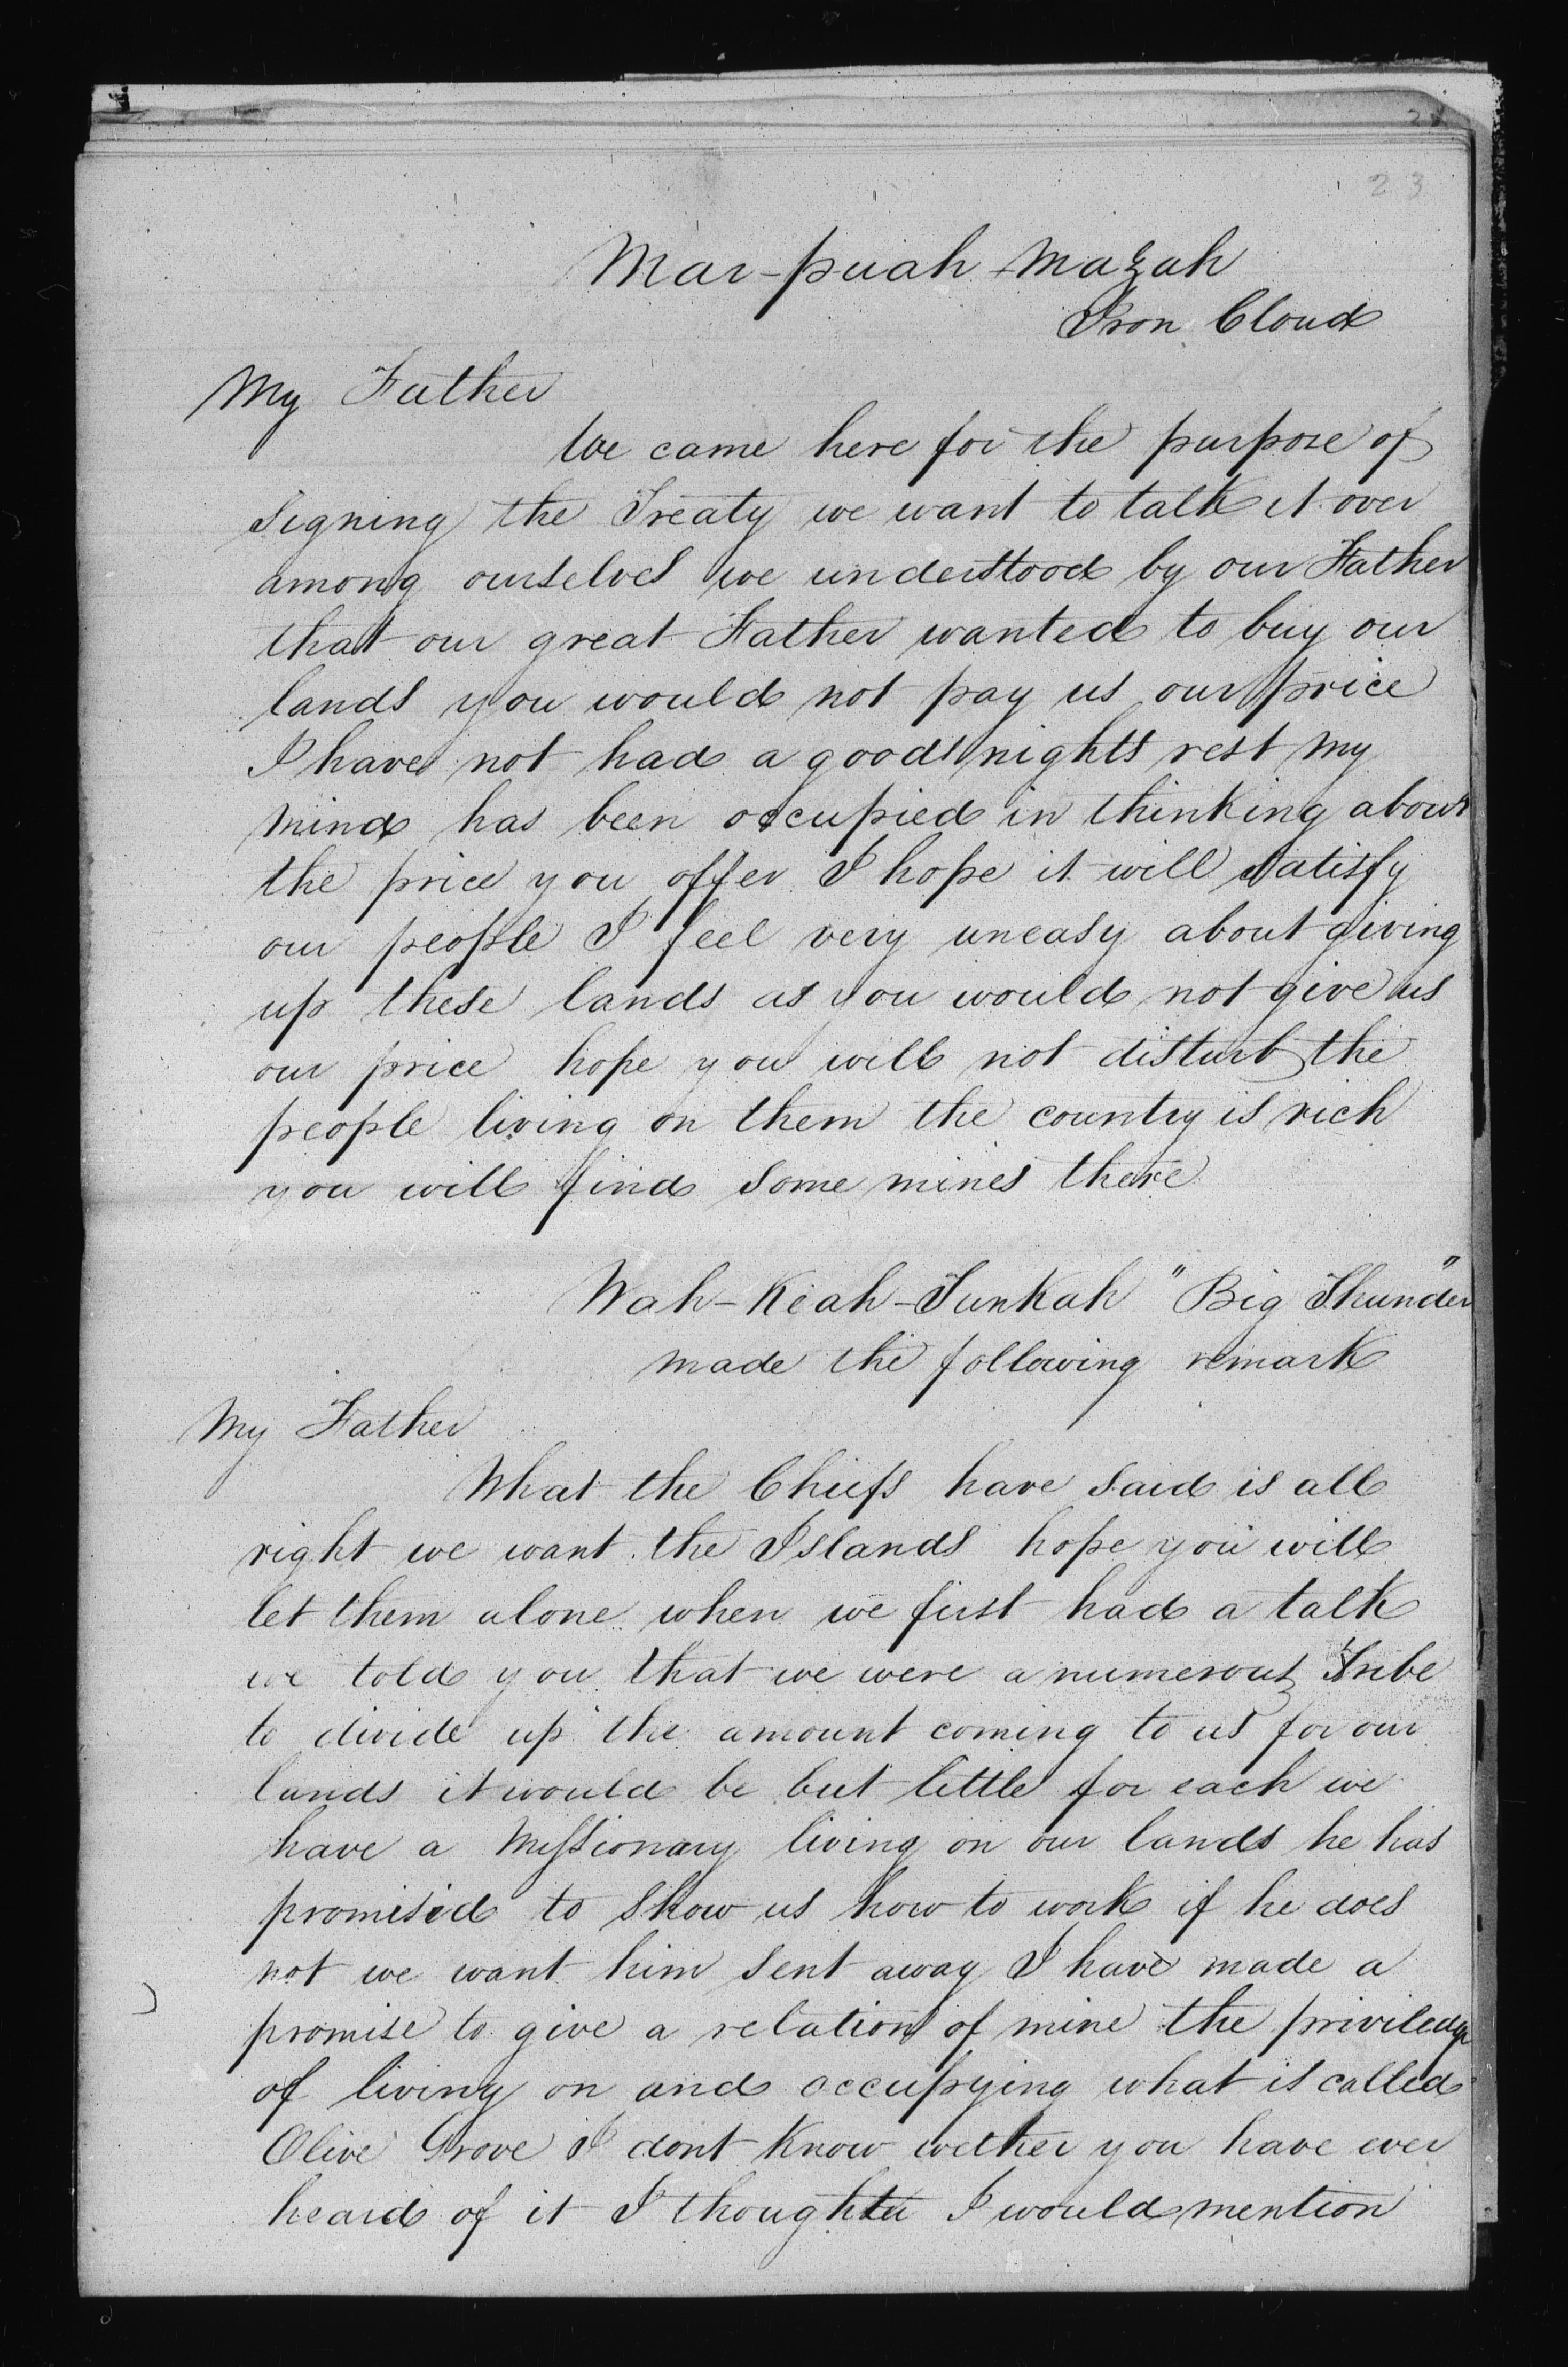 23
Mar-puah-Mazah
Iron Cloud
My Father
We came here for the purpose of
signing the Treaty we want to talk it over
among ourselves we understood by our Father
that our great Father wanted to buy our
lands you would not pay us our price
I have not had a good nights rest my
mind has been occupied in thinking about
the price you offer I hope it will satisfy
our people I feel very uneasy about giving
up these lands as you would not give us
our price hope you will not disturb the
people living on them the country is rich
you will find some mines there
Wah-Keah-Tunkah "Big Thunder"
made the following remark
My Father
What the Chiefs have said is all
right we want the Islands hope you will
let them alone when we first had a talk
we told you that we were a numerous Tribe
to divide up the amount coming to us for our
lands it would be but little for each we
have a Missionary living on our lands he has
promised to show us how to work if he does
not we want him sent away I have made a
promise to give a relation of mine the priviledge
of living on and occupying what is called
Olive Grove I dont Know wether you have ever
heard of it I thought I would mention